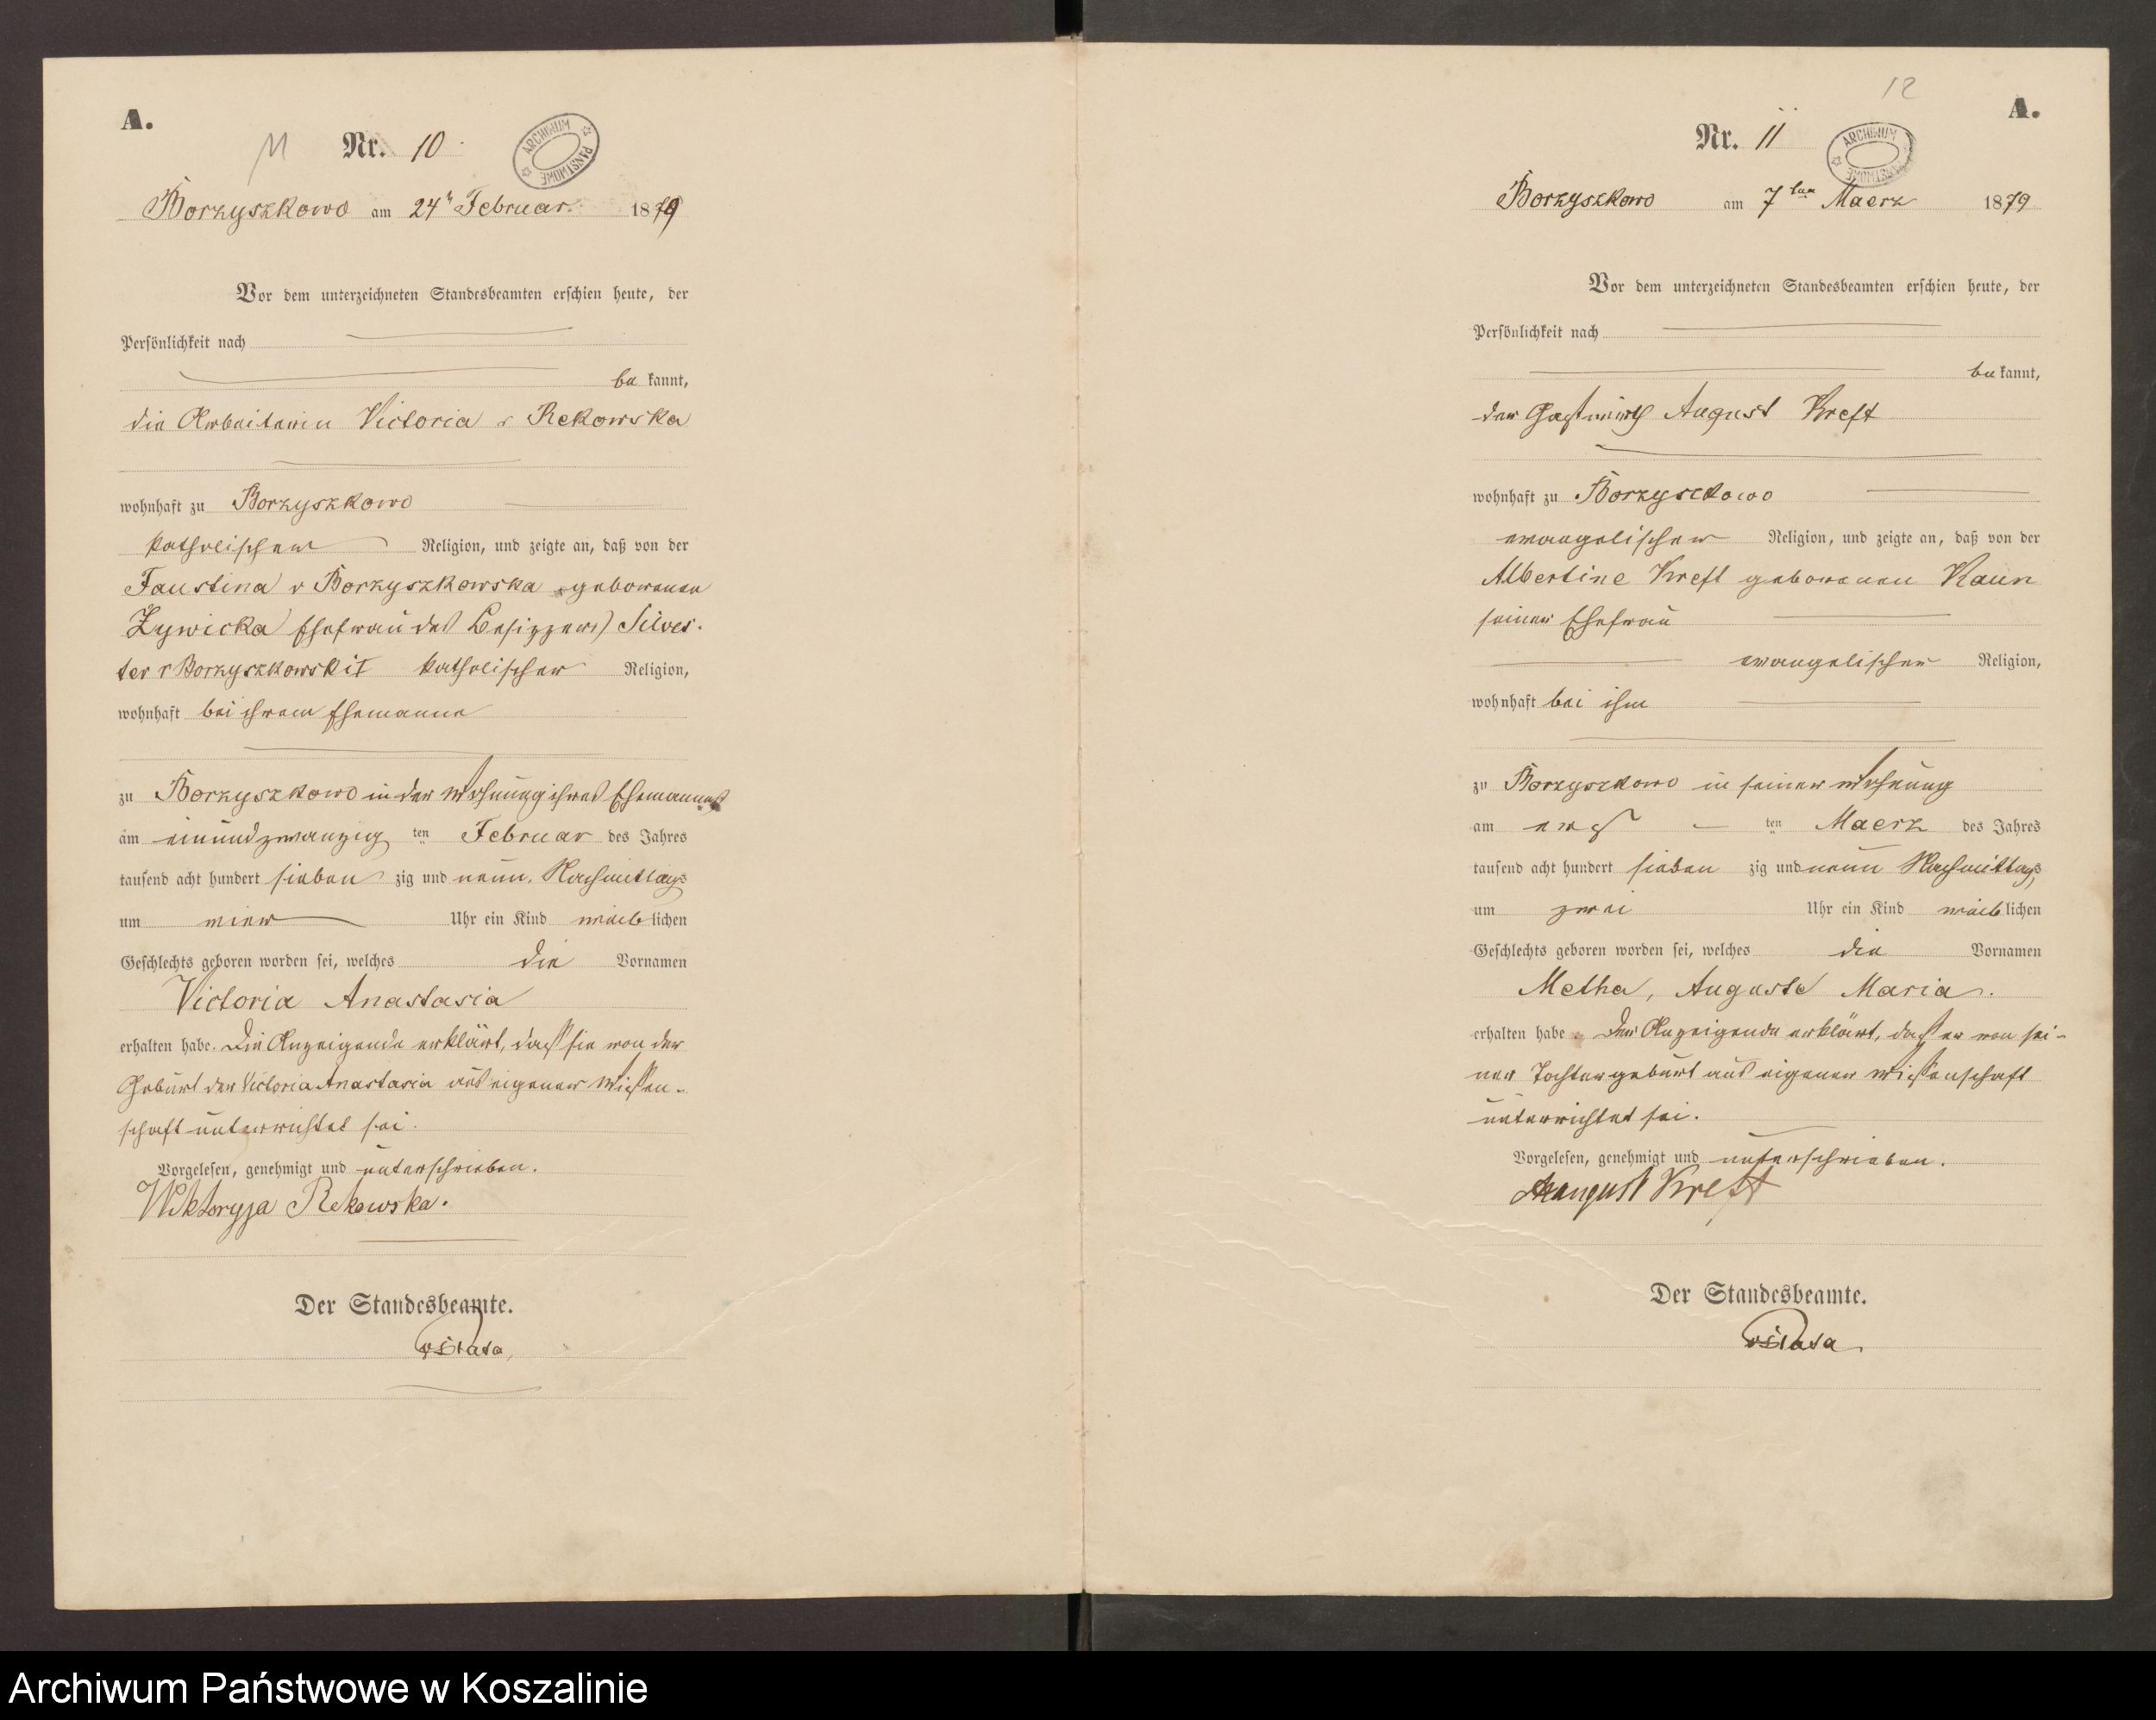 A.
11
Nr. 10.
ARCHIWUM PAŃSTWOWE
Borzyszkowo am 24n Februar 1879
Vor dem unterzeichneten Standesbeamten erschien heute, der
Persönlichkeit nach
be kannt,
die Arbeiterin Victoria v Rekowska
wohnhaft zu Borzyszkowo
katholischer Religion, und zeigte an, daß von der
Faustina v Borzyszkowska geborenen
Zywicka Ehefrau des Besitzers Silves-
ter v Borzyszkowski I katholischer Religion,
wohnhaft bei ihrem Ehemanne
zu Borzyszkowo in der Wohnung ihres Ehemannes
am einundzwanzig ten Februar des Jahres
tausend acht hundert sieben zig und neun. Nachmittags
um vier Uhr ein Kind weiblichen
Geschlechts geboren worden sei, welches die Vornamen
Victoria Anastasia
erhalten habe. Die Anzeigende erklärt, daß sie von der
Geburt der Victoria Anastasia aus eigener Wissen-
schaft unterrichtet sei.
Vorgelesen, genehmigt und unterschrieben.
Wiktoryja Rekowska.
Der Standesbeamte.
12
A.
Nr. 11
ARCHIWUM PAŃSTWOWE
Borzyszkowo am 7ten Maerz 1879
Vor dem unterzeichneten Standesbeamten erschien heute, der
Persönlichkeit nach
be kannt,
der Gastwirth August Kreft
wohnhaft zu Borzyszkowo
evangelischer Religion, und zeigte an, daß von der
Albertine Kreft geborenen Raun
seiner Ehefrau
evangelischer Religion,
wohnhaft bei ihm
zu Borzyszkowo in seiner Wohnung
am ers ten Maerz des Jahres
tausend acht hundert sieben zig und neun Nachmittags
um zwei Uhr ein Kind weiblichen
Geschlechts geboren worden sei, welches die Vornamen
Metha, Auguste Maria.
erhalten habe. Der Anzeigende erklärt, daß er von sei-
ner Tochter geburt aus eigener Wissenschaft
unterrichtet sei.
Vorgelesen, genehmigt und unterschrieben.
August Kreft
Der Standesbeamte.
Archiwum Państwowe w Koszalinie